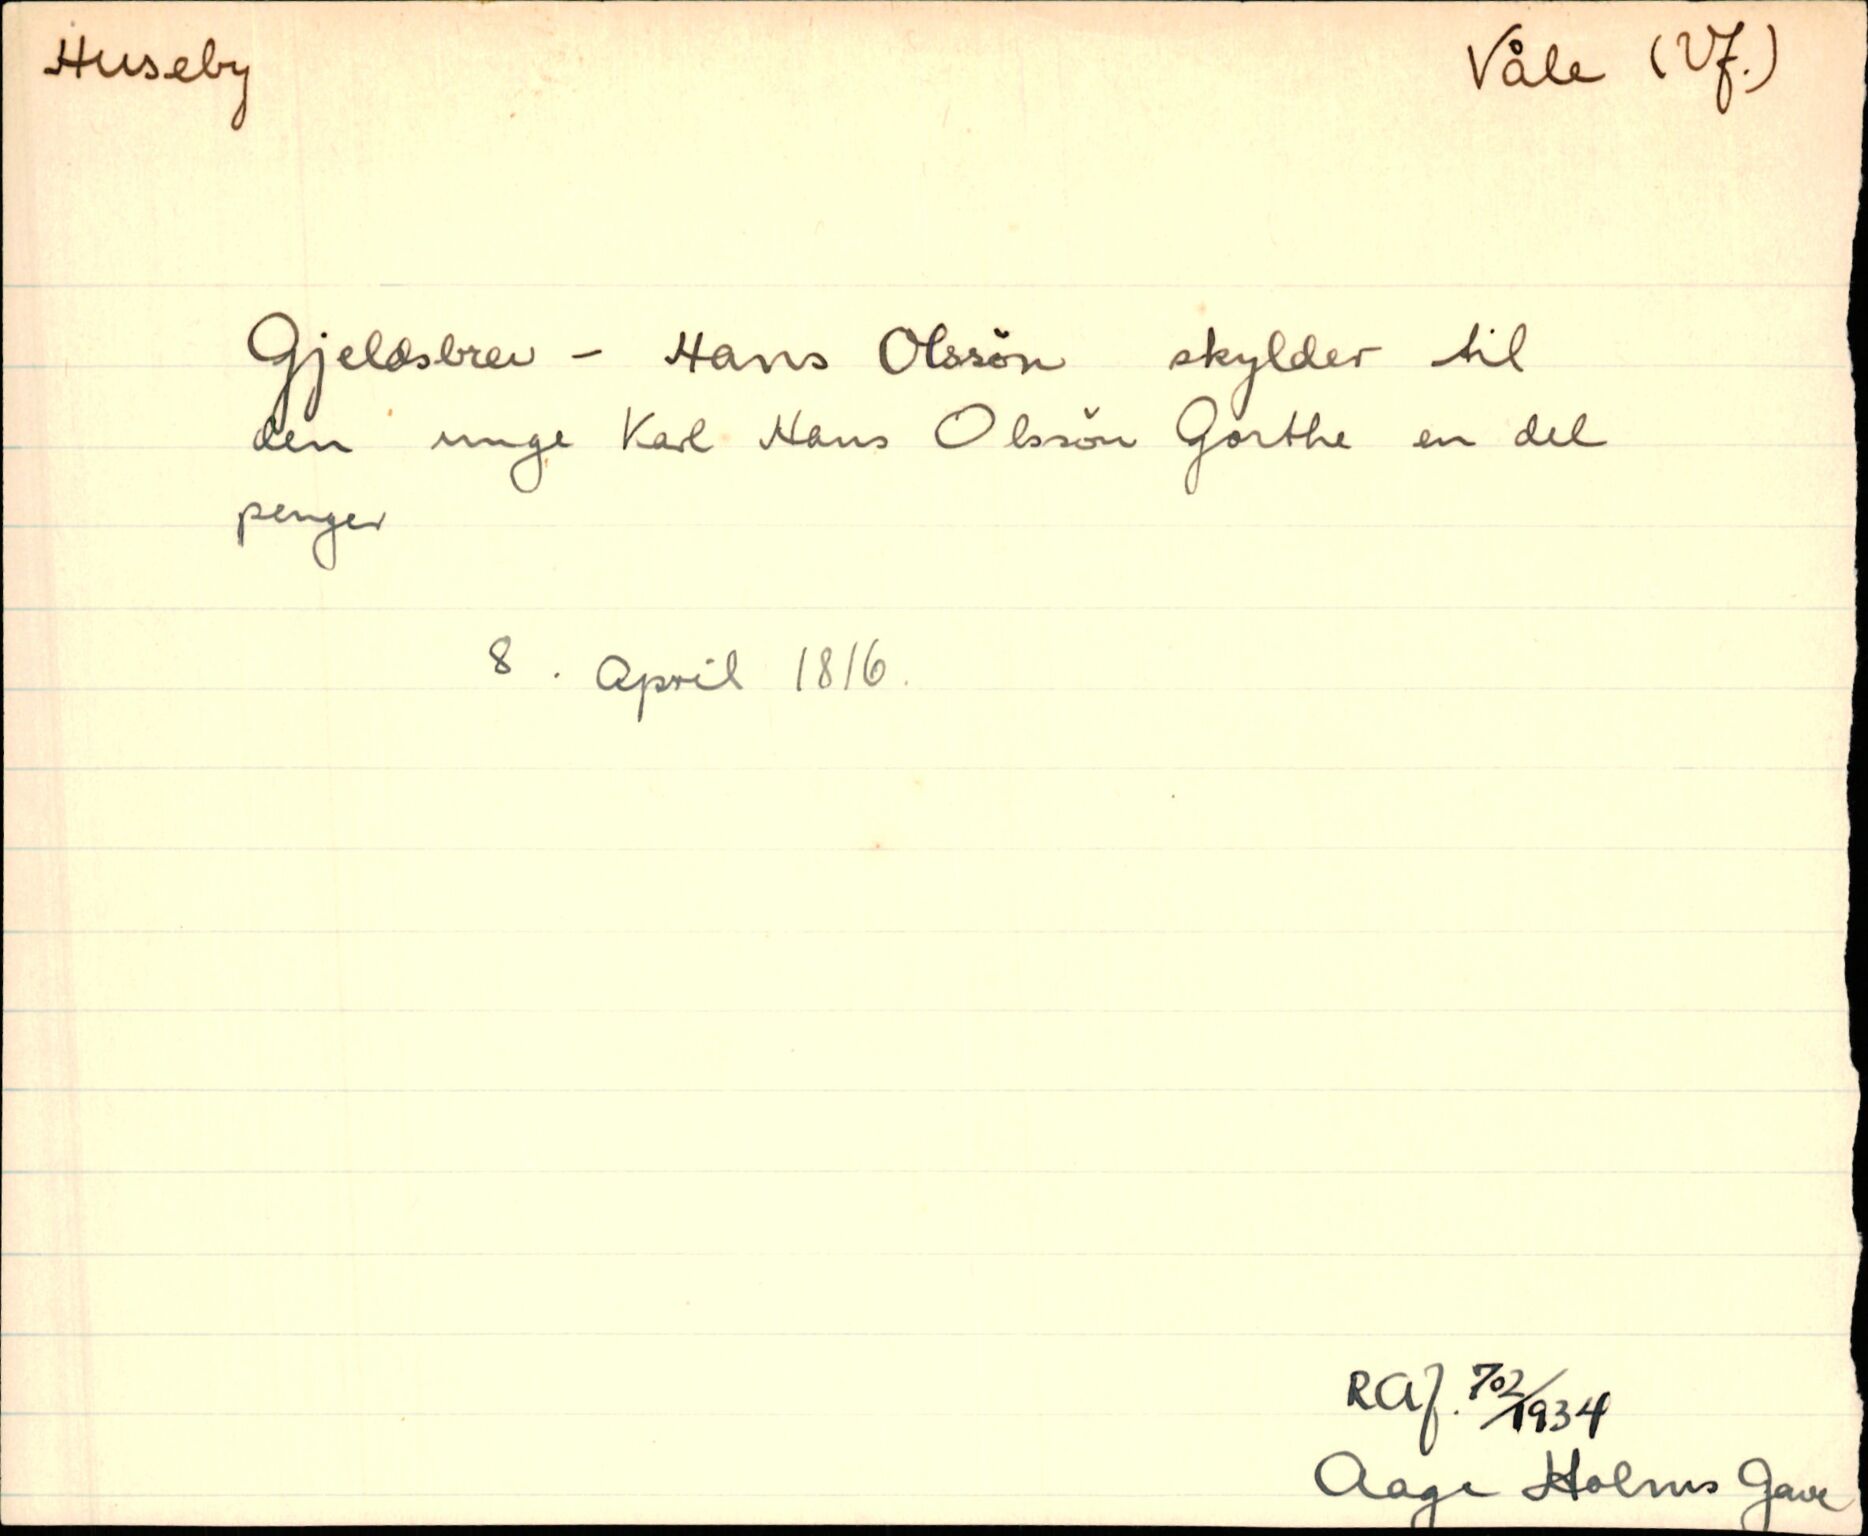 Huseby
Våle (Vf.)
Gjeldsbrev - Hans Olssön skylder til
den unge Karl Hans Olssön Gorthe en del
penger
8. April 1816.
RAJ. 702/1934
Aage Holms Gave